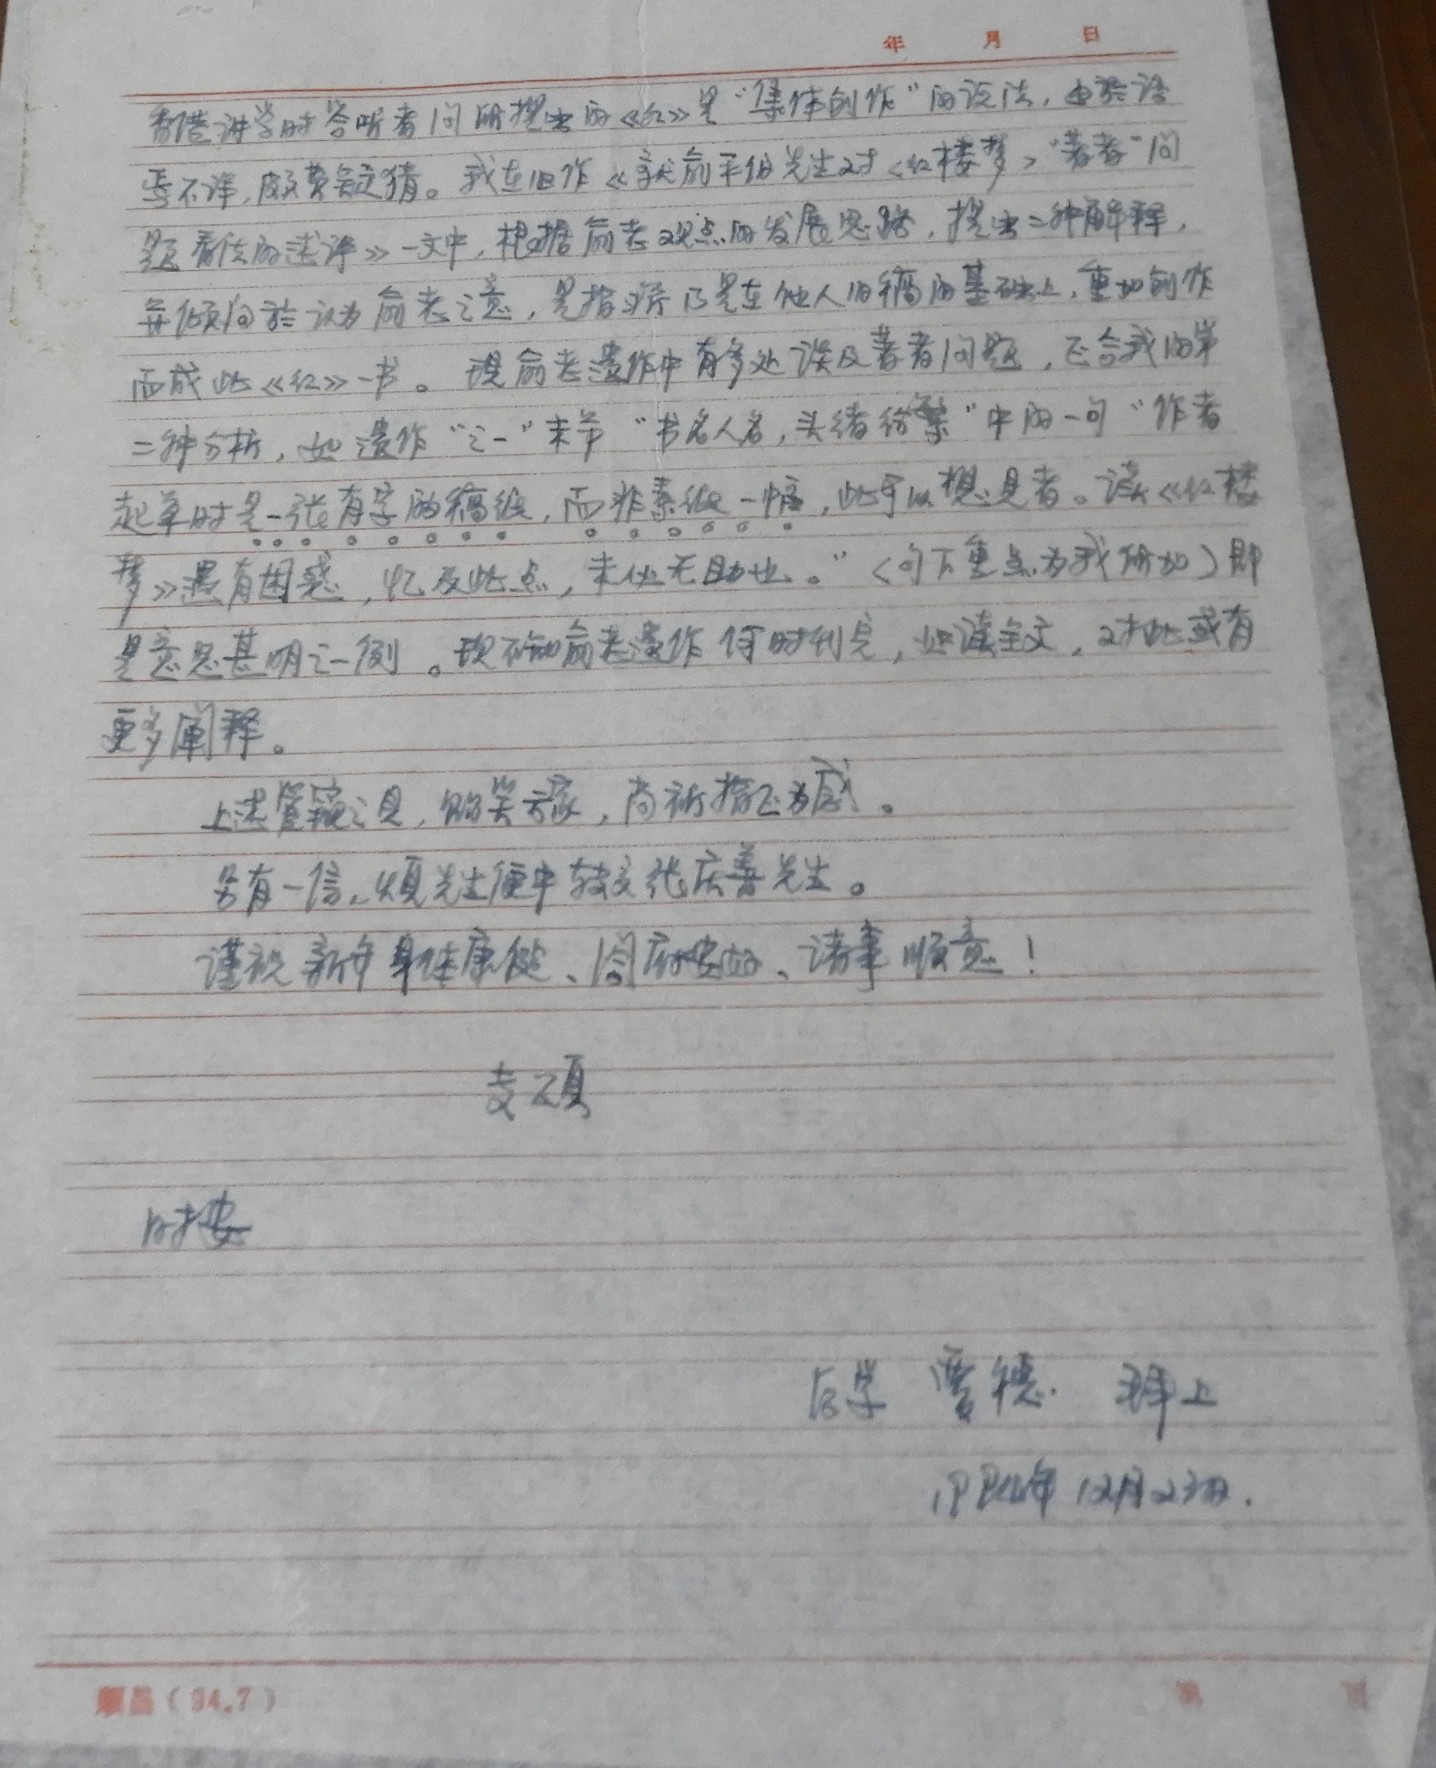 年 月 日
香港讲学时答听者问所提出的《红》是“集体创作”的说法，由於语
焉不详，颇费疑猜。我在旧作《就俞平伯先生对《红楼梦》“著者”问
题看法的述评》一文中，根据俞老观点的发展思路，提出二种解释，
并倾向於认为俞老之意，是指乃是在他人旧稿的基础上，重加创作
而成此《红》一书。现俞老遗作中有多处谈及著者问题，正合我的第
二种分析，如遗作“之一”末节“书名人名，头绪纷繁”中的一句“作者
起草时是一张有字的稿纸，而非素纸一幅，此可以想见者。读《红楼
梦》遇有困惑，忆及此点，未似无助也。”（句下重点为我所加）即
是意思甚明之一例。现不知俞老遗作何时刊完，如读全文，对此或有
更多阐释。
上述管窥之见，贻笑方家，尚祈指正为感。
另有一信，烦先生便中转交张庆善先生。
谨祝新年身体康健、阖府安好、诸事顺意！
专颂
时安
后学 贾穗 拜上
12月23日.
（94.7） 第 页